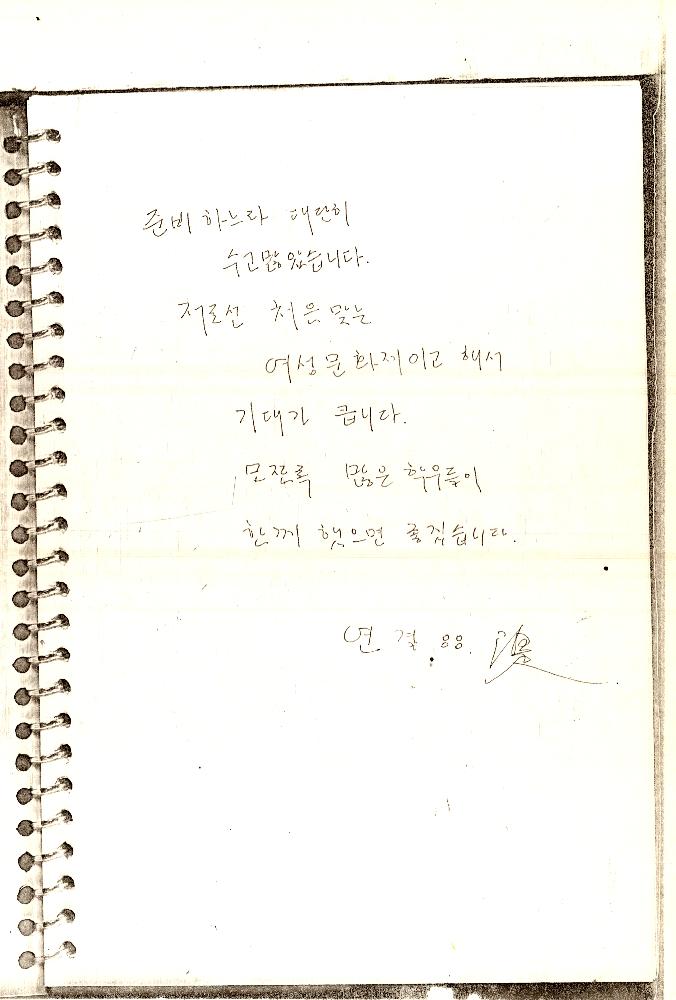 준비하느라 대단히
수고많았습니다.
저로선 처음 맞는
여성문화제이고 해서
기대가 큽니다.
모쪼록 많은 학우들이
함께 했으면 좋겠습니다.
연결 88.